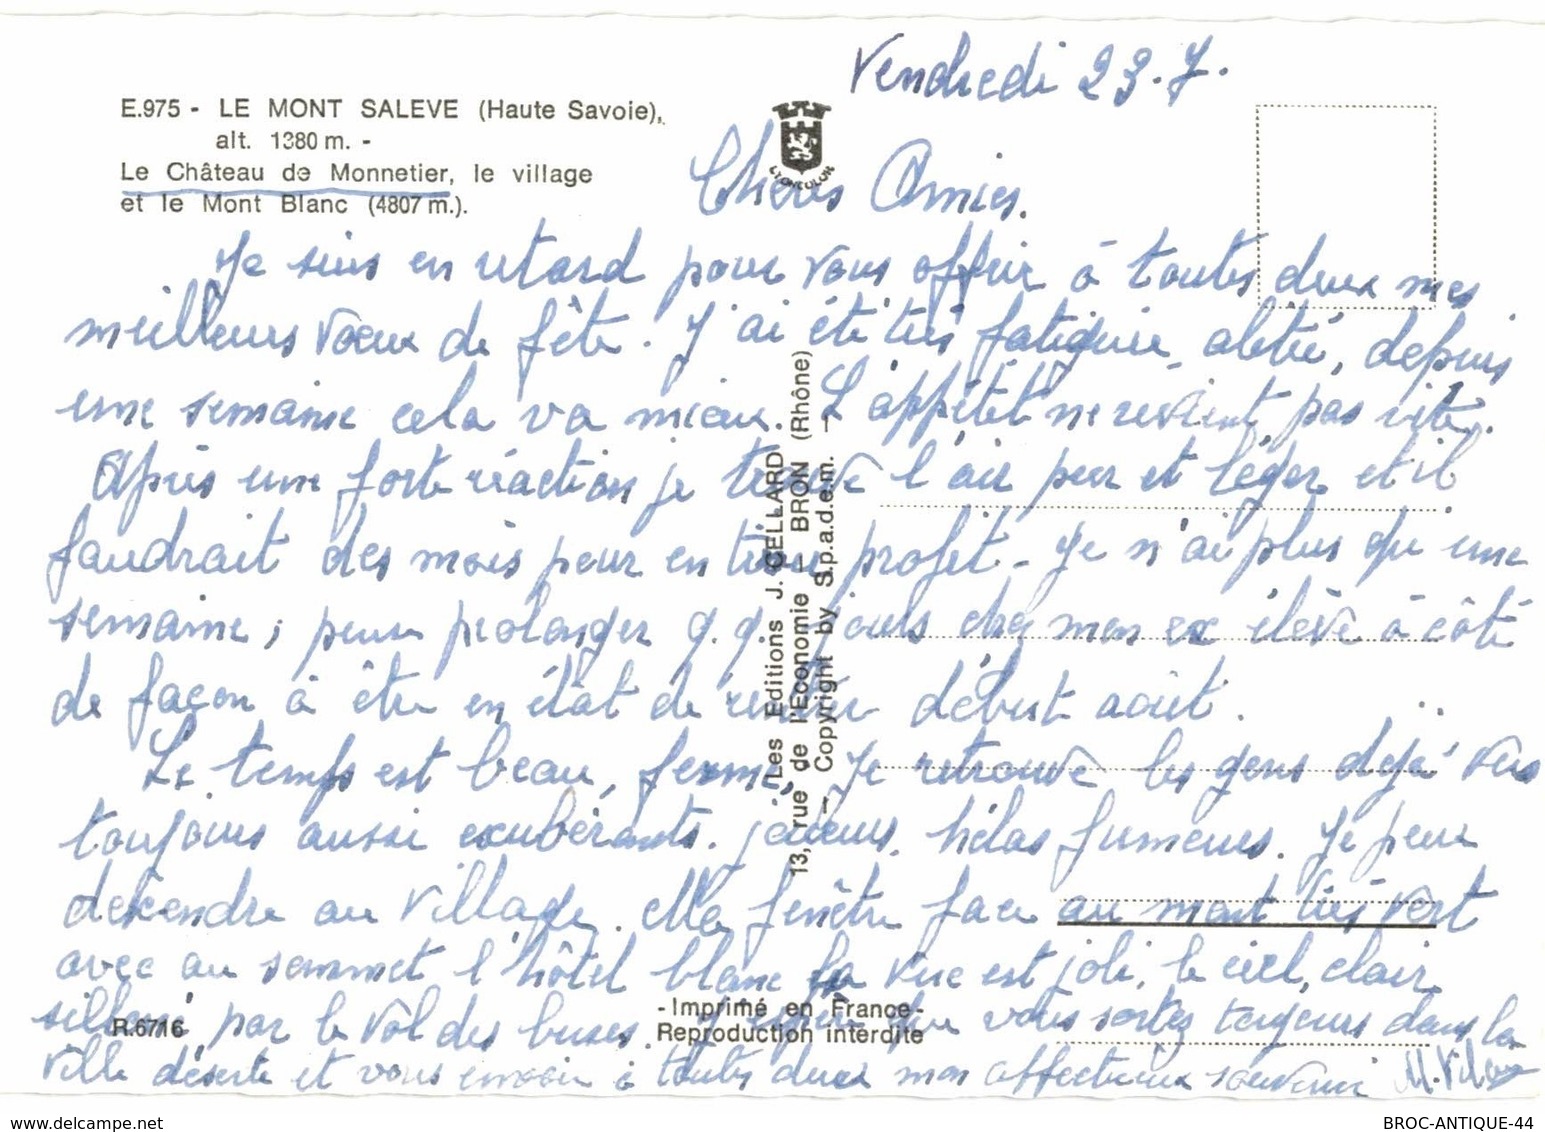 Vendredi 23.7.
E.975 - LE MONT SALEVE (Haute Savoie),
alt. 1380 m. -
Le Château de Monnetier, le village
et le Mont Blanc (4807 m.).
LYONCOLOR
Chères Amies.
Je suis en retard pour vous offrir à toutes deux mes
meilleurs vœux de fête. J'ai été très fatiguée, alitée, depuis
une semaine cela va mieux. L'appétit ne revient pas vite.
Après une forte réaction je trouve l'air pur et léger et il
faudrait des mois pour en tirer profit - Je n'ai plus qu'une
semaine, prolonger q.q. jours chez mon ex élève à côté
de façon à être en état de rentrer début août.
Le temps est beau, ferme, Je retrouve les gens déjà vus
toujours aussi exubérants, joueurs, hélas fumeurs. Je peux
descendre au village. Ma fenêtre face au mont très vert
avec au sommet l'hôtel blanc la vue est joli, le ciel, clair
par le vol des buses. J'espère que vous sortez toujours dans la
ville déserte et vous envoie à toutes deux mon affectueux souvenir
Les Editions J. CELLARD
13, rue de l'Economie - BRON (Rhône)
- Copyright by S.p.a.d.e.m. -
R.6716
-Imprimé en France-
Reproduction interdite
BROC-ANTIQUE-44